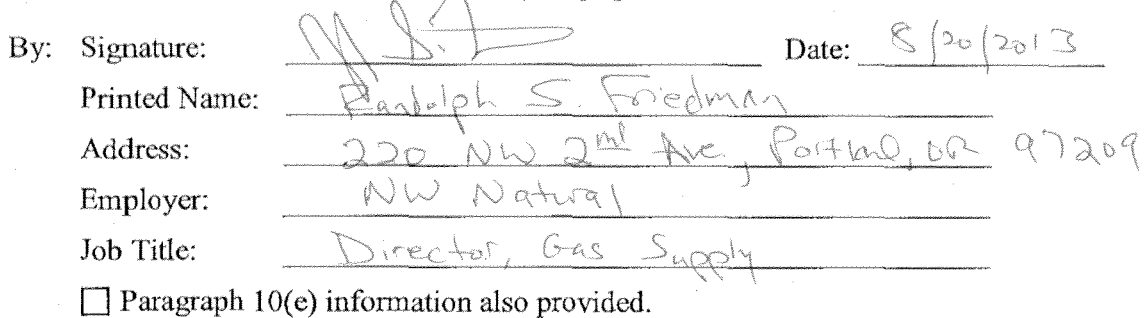 By: Signature: Date: 8/20/2013
Printed Name: Randolph S. Friedman
Address: 220 NW 2nd Ave., Portland, OR 97209
Employer: NW Natural
Job Title: Director, Gas Supply
☐ Paragraph 10(e) information also provided.